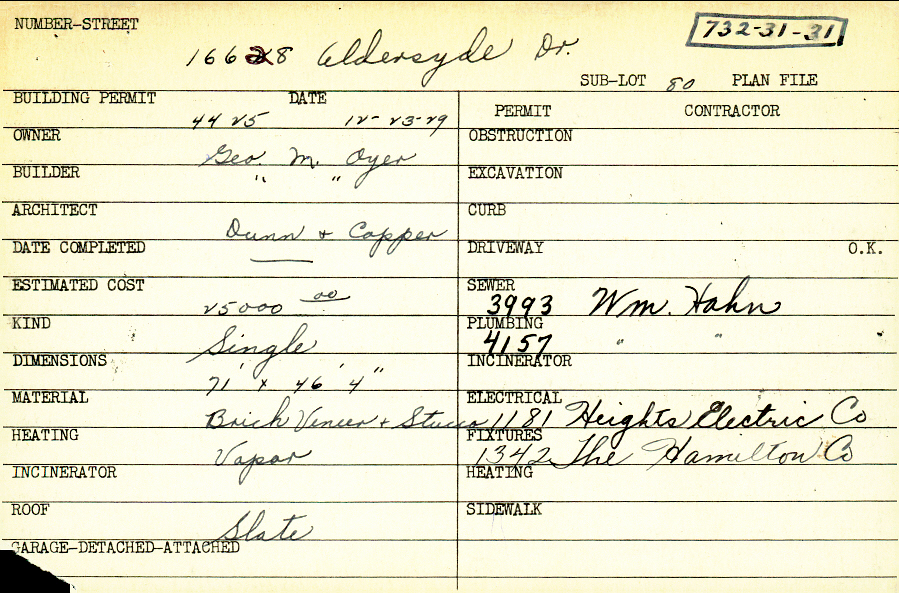 NUMBER-STREET
732-31-31
16628 Aldersyde Dr.
SUB-LOT 80 PLAN FILE
BUILDING PERMIT DATE
4425 12-23-29
OWNER
Geo. M. Oyer
BUILDER
" "
ARCHITECT
Dunn + Copper
DATE COMPLETED
ESTIMATED COST
25000 00
KIND
Single
DIMENSIONS
71' x 46' 4"
MATERIAL
Brick Veneer + Stucco
HEATING
Vapor
INCINERATOR
ROOF
Slate
GARAGE-DETACHED-ATTACHED
PERMIT CONTRACTOR
OBSTRUCTION
EXCAVATION
CURB
DRIVEWAY O.K.
SEWER
3993 Wm. Hahn
PLUMBING
4157 " "
INCINERATOR
ELECTRICAL
1181 Heights Electric Co
FIXTURES
1342 The Hamilton Co
HEATING
SIDEWALK